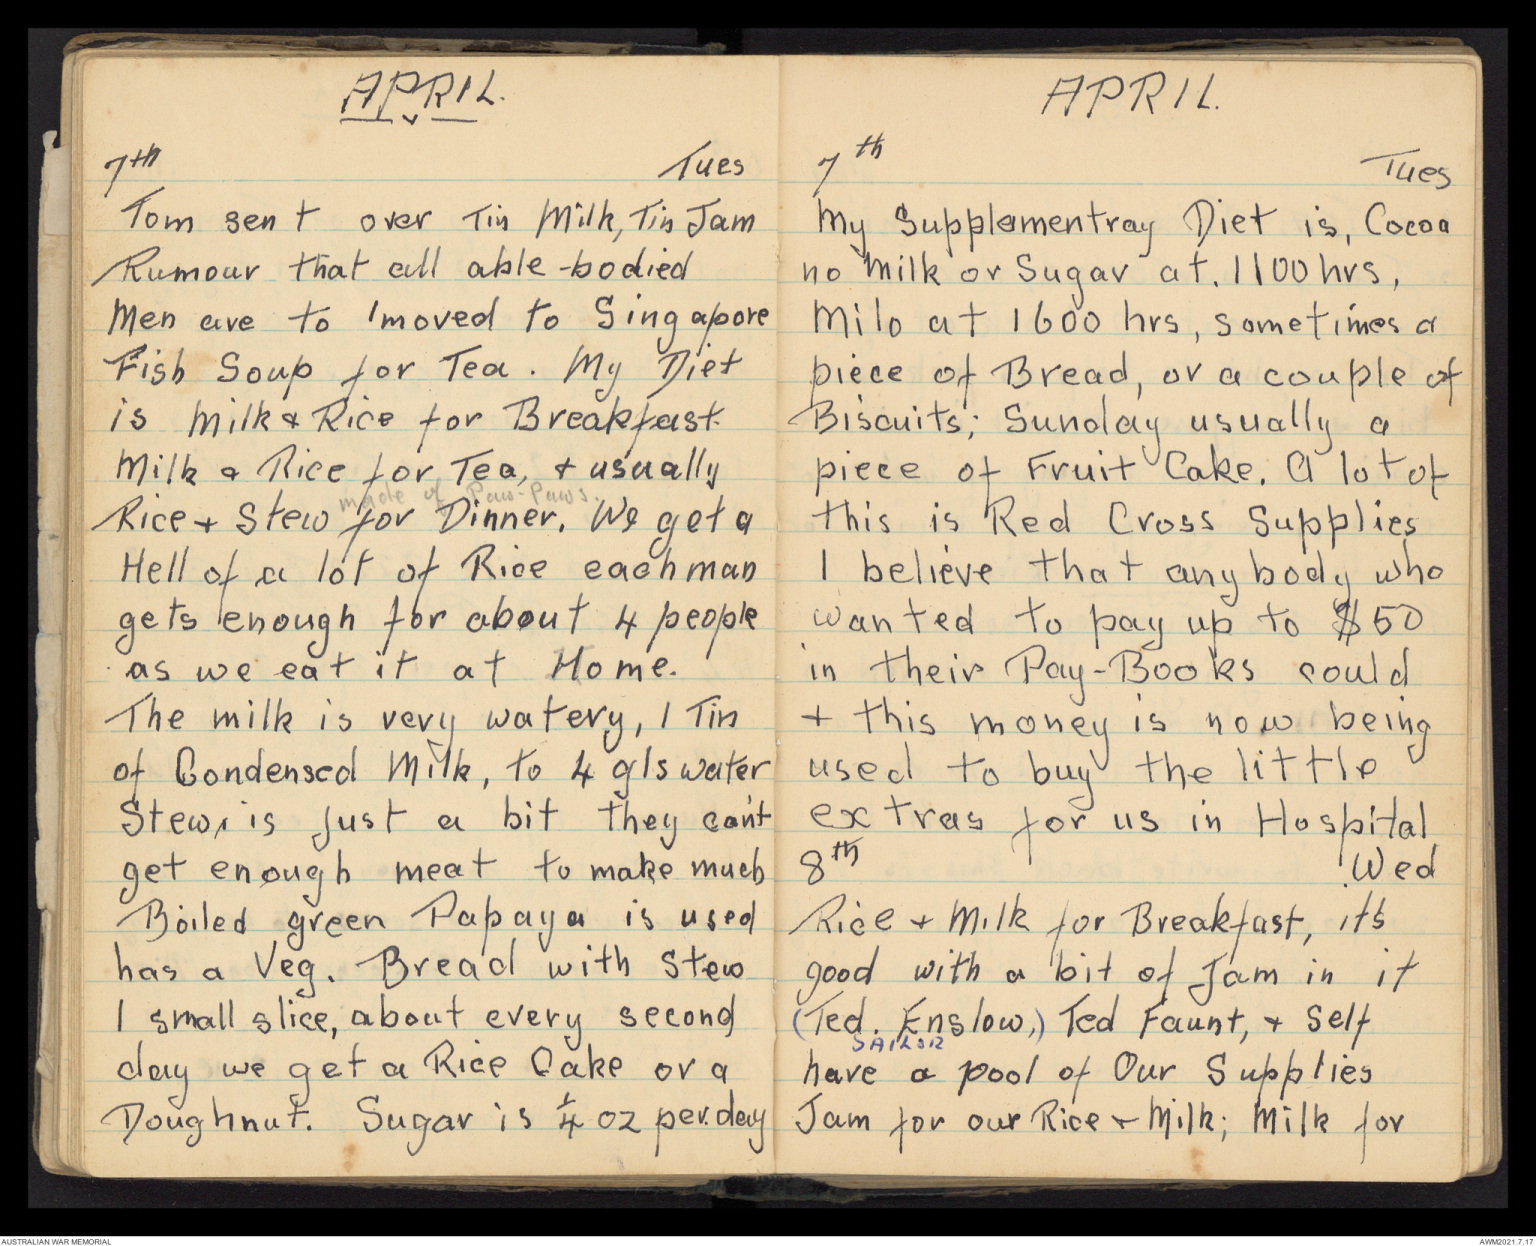 APRIL.
7th Tues
Tom sent over Tin Milk, Tin Jam
Rumour that all able-bodied
Men are to moved to Singapore
Fish Soup for Tea. My Diet
is Milk & Rice for Breakfast.
Milk & Rice for Tea, & usually
made of Paw-Paws.
Rice + Stew for Dinner. We get a
Hell of a lot of Rice each man
gets enough for about 4 people
as we eat it at Home.
The milk is very watery, 1 Tin
of Condensed Milk, to 4 gls water
Stew, is just a bit they can't
get enough meat to make much
Boiled green Papaya is used
has a Veg. Bread with Stew
1 small slice, about every second
day we get a Rice Cake or a
Doughnut. Sugar is 1/4 oz per.day
APRIL.
7th Tues
My Supplementray Diet is, Cocoa
no Milk or Sugar at. 1100 hrs,
Milo at 1600 hrs, sometimes a
piece of Bread, or a couple of
Biscuits; Sunday usually a
piece of Fruit Cake. A lot of
this is Red Cross Supplies
I believe that anybody who
wanted to pay up to $50
in their Pay-Books could
+ this money is now being
used to buy the little
extras for us in Hospital
8th Wed
Rice + Milk for Breakfast, it's
good with a bit of Jam in it
(Ted. Enslow,) Ted Faunt, + Self
SAILOR
have a pool of Our Supplies
Jam for our Rice + Milk; Milk for
AUSTRALIAN WAR MEMORIAL
AWM2021.7.17